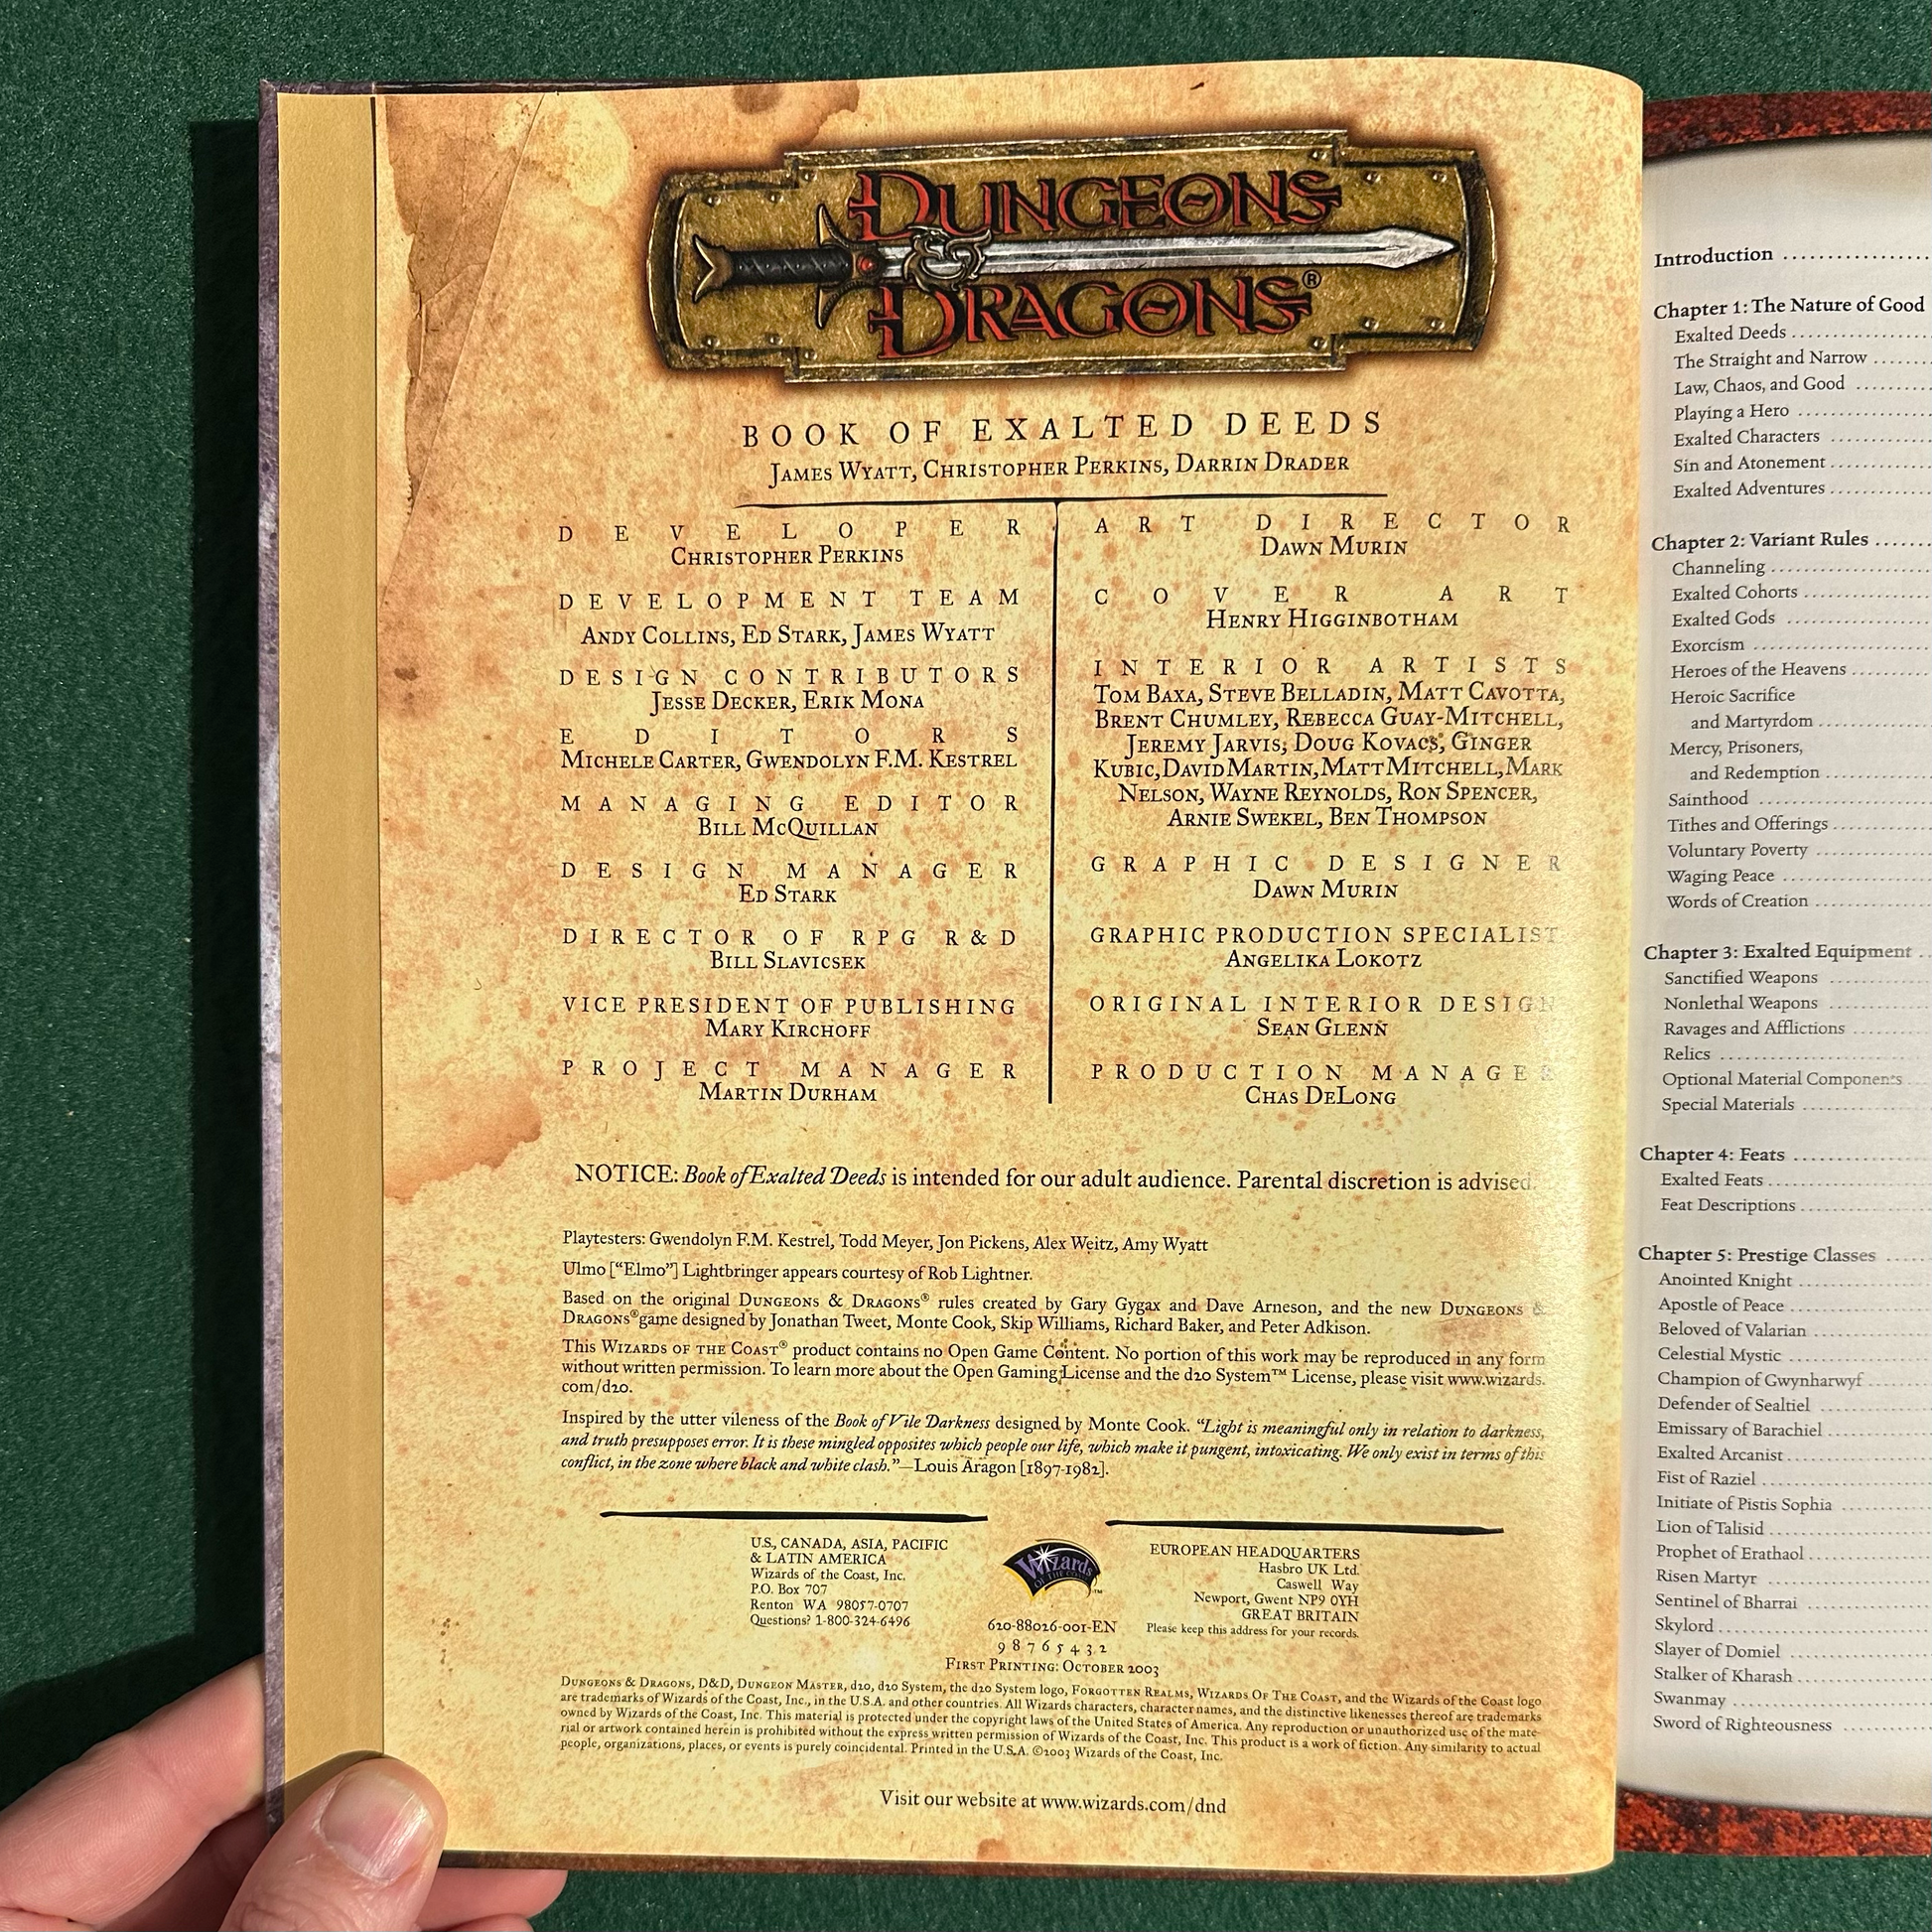 DUNGEONS
DRAGONS®
BOOK OF EXALTED DEEDS
JAMES WYATT, CHRISTOPHER PERKINS, DARRIN DRADER
DEVELOPER
CHRISTOPHER PERKINS
DEVELOPMENT TEAM
ANDY COLLINS, ED STARK, JAMES WYATT
DESIGN CONTRIBUTORS
JESSE DECKER, ERIK MONA
EDITORS
MICHELE CARTER, GWENDOLYN F.M. KESTREL
MANAGING EDITOR
BILL MCQUILLAN
DESIGN MANAGER
ED STARK
DIRECTOR OF RPG R&D
BILL SLAVICSEK
VICE PRESIDENT OF PUBLISHING
MARY KIRCHOFF
PROJECT MANAGER
MARTIN DURHAM
ART DIRECTOR
DAWN MURIN
COVER ART
HENRY HIGGINBOTHAM
INTERIOR ARTISTS
TOM BAXA, STEVE BELLADIN, MATT CAVOTTA,
BRENT CHUMLEY, REBECCA GUAY-MITCHELL,
JEREMY JARVIS, DOUG KOVACS, GINGER
KUBIC, DAVID MARTIN, MATT MITCHELL, MARK
NELSON, WAYNE REYNOLDS, RON SPENCER,
ARNIE SWEKEL, BEN THOMPSON
GRAPHIC DESIGNER
DAWN MURIN
GRAPHIC PRODUCTION SPECIALIST
ANGELIKA LOKOTZ
ORIGINAL INTERIOR DESIGN
SEAN GLENN
PRODUCTION MANAGER
CHAS DELONG
NOTICE: Book of Exalted Deeds is intended for our adult audience. Parental discretion is advised.
Playtesters: Gwendolyn F.M. Kestrel, Todd Meyer, Jon Pickens, Alex Weitz, Amy Wyatt
Ulmo [“Elmo”] Lightbringer appears courtesy of Rob Lightner.
Based on the original DUNGEONS & DRAGONS® rules created by Gary Gygax and Dave Arneson, and the new DUNGEONS &
DRAGONS® game designed by Jonathan Tweet, Monte Cook, Skip Williams, Richard Baker, and Peter Adkison.
This WIZARDS OF THE COAST® product contains no Open Game Content. No portion of this work may be reproduced in any form
without written permission. To learn more about the Open Gaming License and the d20 System™ License, please visit www.wizards.
com/d20.
Inspired by the utter vileness of the Book of Vile Darkness designed by Monte Cook. “Light is meaningful only in relation to darkness,
and truth presupposes error. It is these mingled opposites which people our life, which make it pungent, intoxicating. We only exist in terms of this
conflict, in the zone where black and white clash.”—Louis Aragon [1897-1982].
U.S., CANADA, ASIA, PACIFIC
& LATIN AMERICA
Wizards of the Coast, Inc.
P.O. Box 707
Renton WA 98057-0707
Questions? 1-800-324-6496
Wizards
OF THE COAST™
620-88026-001-EN
9 8 7 6 5 4 3 2
FIRST PRINTING: OCTOBER 2003
EUROPEAN HEADQUARTERS
Hasbro UK Ltd.
Caswell Way
Newport, Gwent NP9 0YH
GREAT BRITAIN
Please keep this address for your records.
DUNGEONS & DRAGONS, D&D, DUNGEON MASTER, d20, d20 System, the d20 System logo, FORGOTTEN REALMS, WIZARDS OF THE COAST, and the Wizards of the Coast logo
are trademarks of Wizards of the Coast, Inc., in the U.S.A. and other countries. All Wizards characters, character names, and the distinctive likenesses thereof are trademarks
owned by Wizards of the Coast, Inc. This material is protected under the copyright laws of the United States of America. Any reproduction or unauthorized use of the mate-
rial or artwork contained herein is prohibited without the express written permission of Wizards of the Coast, Inc. This product is a work of fiction. Any similarity to actual
people, organizations, places, or events is purely coincidental. Printed in the U.S.A. ©2003 Wizards of the Coast, Inc.
Visit our website at www.wizards.com/dnd
Introduction
Chapter 1: The Nature of Good
Exalted Deeds
The Straight and Narrow
Law, Chaos, and Good
Playing a Hero
Exalted Characters
Sin and Atonement
Exalted Adventures
Chapter 2: Variant Rules
Channeling
Exalted Cohorts
Exalted Gods
Exorcism
Heroes of the Heavens
Heroic Sacrifice
and Martyrdom
Mercy, Prisoners,
and Redemption
Sainthood
Tithes and Offerings
Voluntary Poverty
Waging Peace
Words of Creation
Chapter 3: Exalted Equipment
Sanctified Weapons
Nonlethal Weapons
Ravages and Afflictions
Relics
Optional Material Components
Special Materials
Chapter 4: Feats
Exalted Feats
Feat Descriptions
Chapter 5: Prestige Classes
Anointed Knight
Apostle of Peace
Beloved of Valarian
Celestial Mystic
Champion of Gwynharwyf
Defender of Sealtiel
Emissary of Barachiel
Exalted Arcanist
Fist of Raziel
Initiate of Pistis Sophia
Lion of Talisid
Prophet of Erathaol
Risen Martyr
Sentinel of Bharrai
Skylord
Slayer of Domiel
Stalker of Kharash
Swanmay
Sword of Righteousness